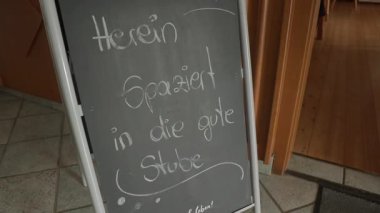 Herein
Spaziert
in die gute
Stube